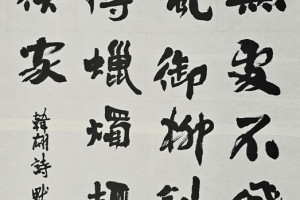 無處不飛
風御柳斜
傳蠟燭輕
侯家
韓翃詩